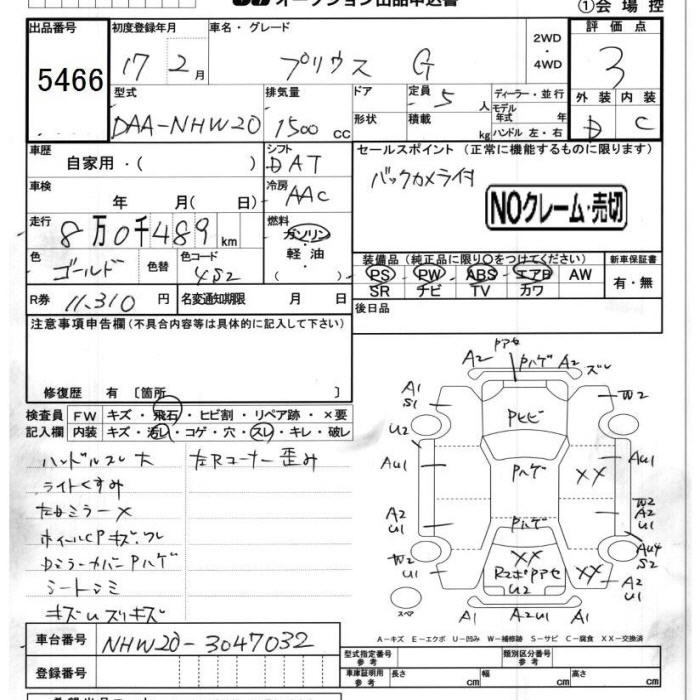 オークション出品申込書
①会場控
出品番号 初度登録年月 車名・グレード 2WD ・4WD 評価点
5466 17 2月 プリウス G 3
型式 排気量 ドア 定員 5人 ディーラー・並行 外装 内装
DAA-NHW20 1500cc 形状 積載 kg モデル年式 年 ハンドル 左・右 D C
車歴 自家用・( ) シフト DAT セールスポイント (正常に機能するものに限ります)
車検 年 月( 日) 冷房 AAC バックカメラ付
NOクレーム・売切
走行 8万0千489km 燃料 ガソリン・軽油 ( )
装備品 (純正品に限り○をつけてください) 新車保証書
色 ゴールド 色替 色コード 4S2 PS PW ABS エアB AW 有・無
SR ナビ TV カワ
R券 11,310円 名変通知期限 月 日 後日品
注意事項申告欄(不具合内容等は具体的に記入して下さい)
修復歴 有 〔箇所 〕
検査員 FW キズ・飛石・ヒビ割・リペア跡・×要
記入欄 内装 キズ・汚レ・コゲ・穴・スレ・キレ・破レ
ハンドルスレ大 左Rコーナー歪み
ライトくすみ
左ドミラー×
ホイールCPキズ、ワレ
DミラーカバーPハゲ
シートシミ
キズUズリキズ
Pアセ
A2 Pハゲ A2 ズレ
A1 S1 W2
Pヒビ
U2
AU1 Pハゲ XX AU1
A2 U1 Pハゲ W2 A2 U1
W2 U1 XX XX AU4 S2
R2ボPアセ U1 A2 U1
スペア A1 A2U1 A1
A－キズ E－エクボ U－凹み W－補修跡 S－サビ C－腐食 XX－交換済
車台番号 NHW20-3047032
登録番号
型式指定番号 参考 類別区分番号 参考
車庫証明 参考 長さ cm 幅 cm 高さ cm